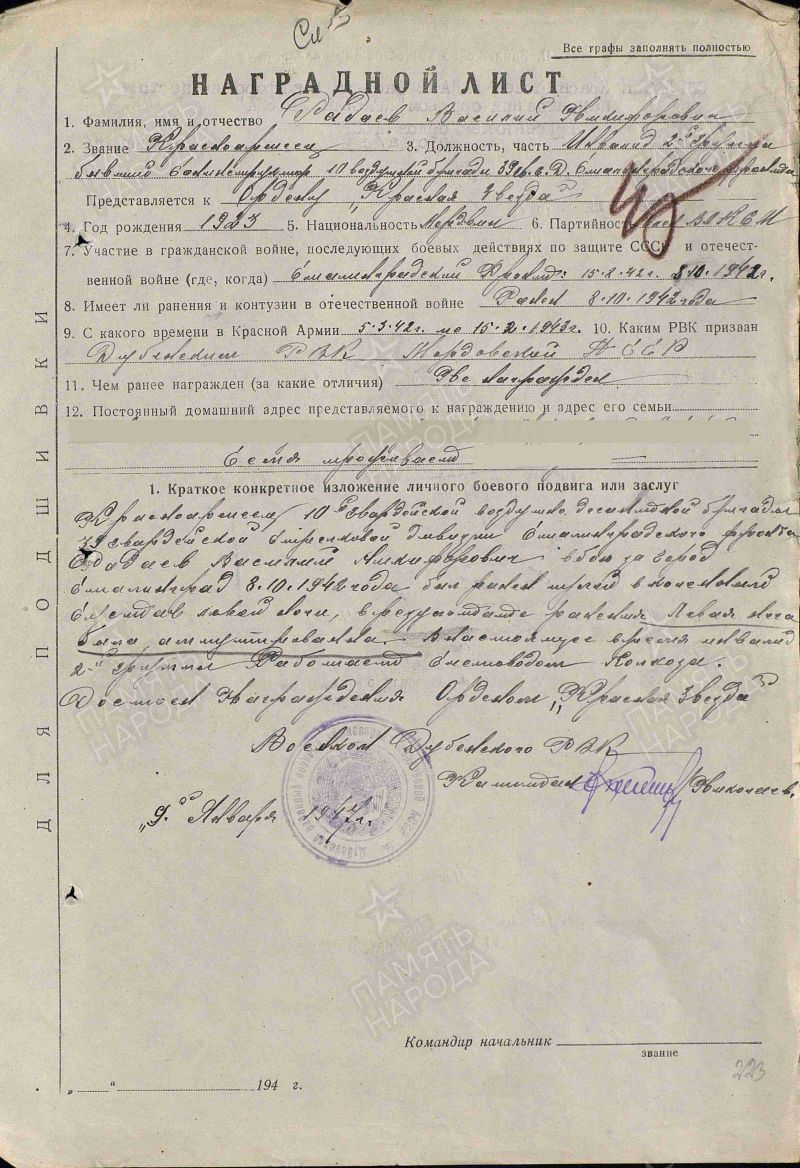 Все графы заполнять полностью
НАГРАДНОЙ ЛИСТ
1. Фамилия, имя и отчество Радаев Василий Никифорович
2. Звание Красноармеец 3. Должность, часть Инвалид 2й группы
бывший 10 воздушной бригады 39 гв. с. Д. Сталинградского фронта
Представляется к Ордену „Красная Звезда"
4. Год рождения 1923 5. Национальность Мордвин 6. Партийность член ВЛКСМ
7. Участие в гражданской войне, последующих боевых действиях по защите СССР и отечест-
венной войне (где, когда) Сталинградский фронт: 15.8.42г. 8.10.1942г.
8. Имеет ли ранения и контузии в отечественной войне Ранен 8.10.1942 года
9. С какого времени в Красной Армии 5.3.42г. по 15.2.1943г. 10. Каким РВК призван
Дубенским РВК Мордовской АССР
11. Чем ранее награжден (за какие отличия) Не награжден
12. Постоянный домашний адрес представляемого к награждению и адрес его семьи
Семя проживает
1. Краткое конкретное изложение личного боевого подвига или заслуг
Красноармеец 10й гвардейской воздушно десантной бригады
39 гвардейской стрелковой дивизии Сталинградского фронта
Радаев Василий Никифорович в бою за город
Сталинград 8.10.1942 года был ранен пулей в коленный
сустав левой ноги, в результате ранения левая нога
была ампутирована. В настоящее время инвалид
2-й группы Работает Колхоза.
Достоен Награждения Орденом „Красная Звезда"
Военком Дубенского РВК
Капитан Николаев.
„9" Января 1947 г.
Командир начальник
звание
„ " 194 г.
223
ДЛЯ ПОДШИВКИ
ПАМЯТЬ НАРОДА